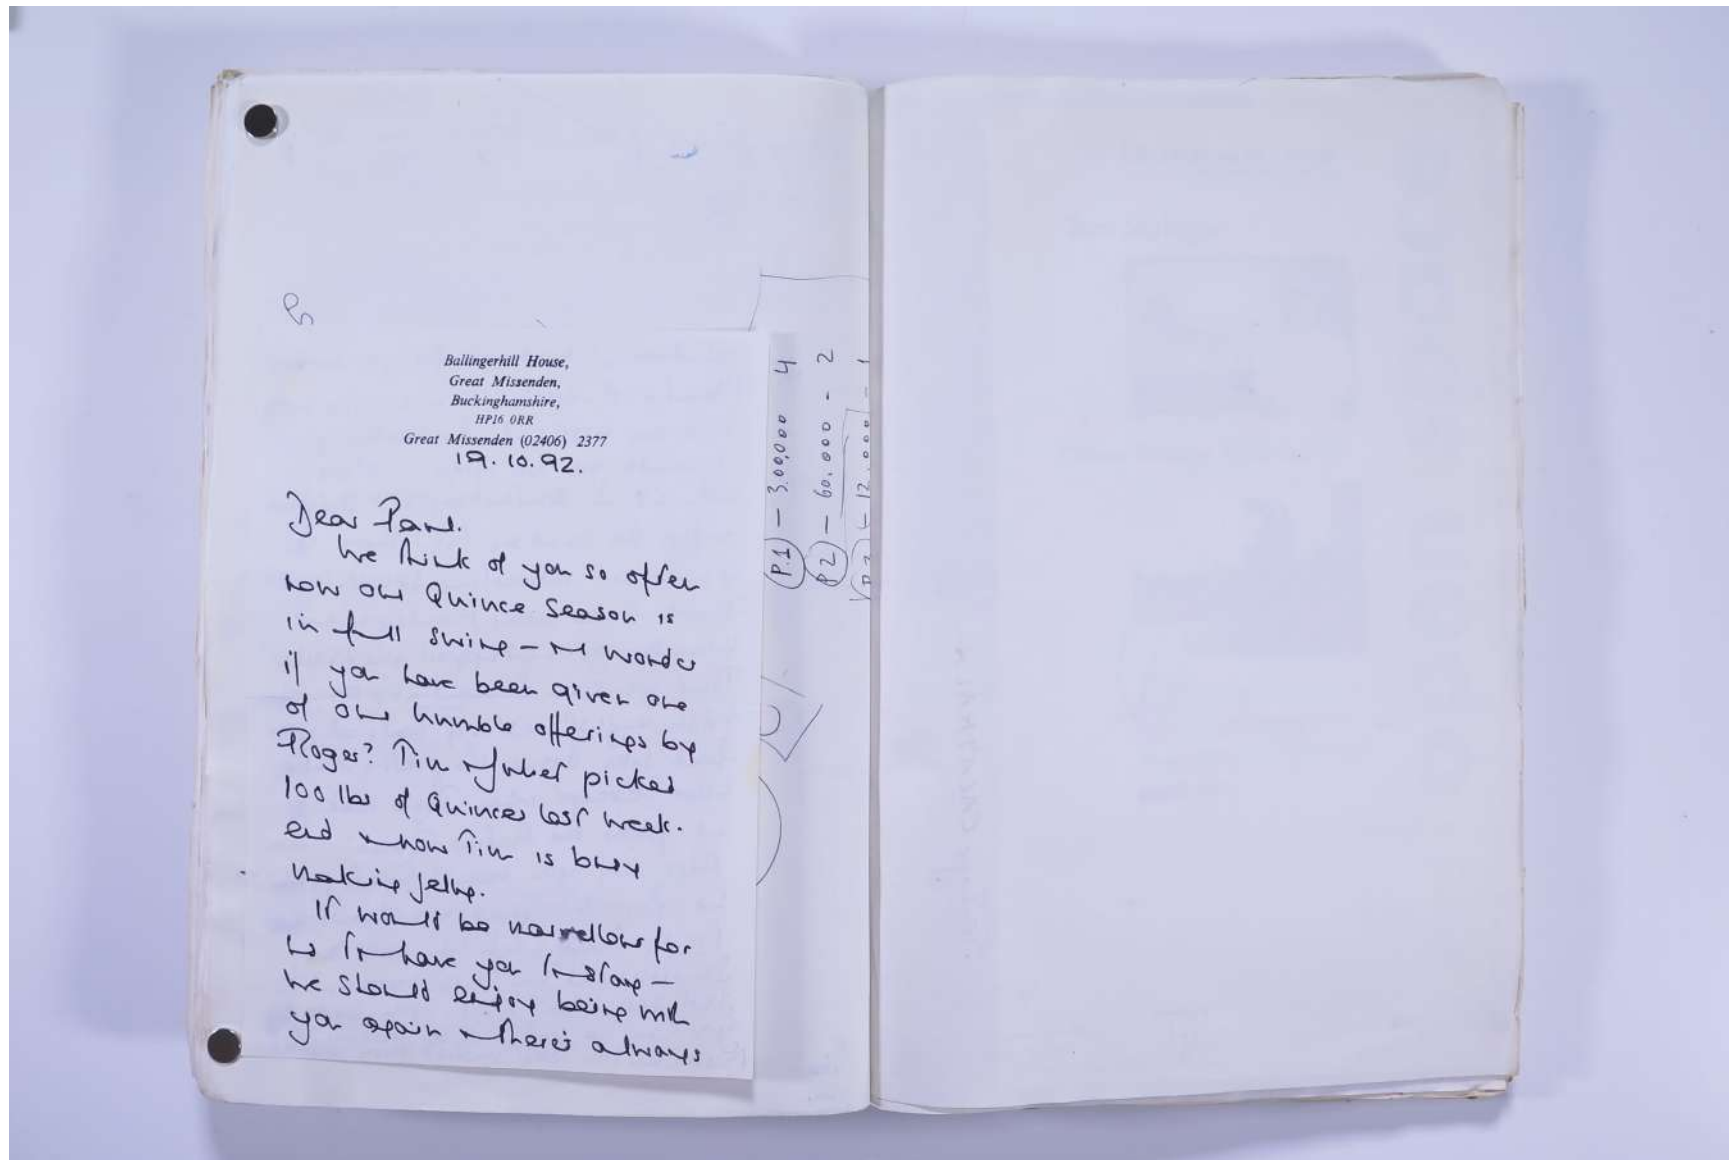 Ballingerhill House,
Great Missenden,
Buckinghamshire,
HP16 0RR
Great Missenden (02406) 2377
19.10.92.
Dear
We think of you so often
now our Quince season is
in full swing – wonder
if you have been given one
of our humble offerings by
Roger? Tim picked
100 lbs of Quinces last week.
and now Tim is busy
making jelly.
It would be marvellous for
us to have you to stay –
we should enjoy being with
you again there's always
P.1 – 300,000 4
P2 – 60.000 - 2
12.000 - 1